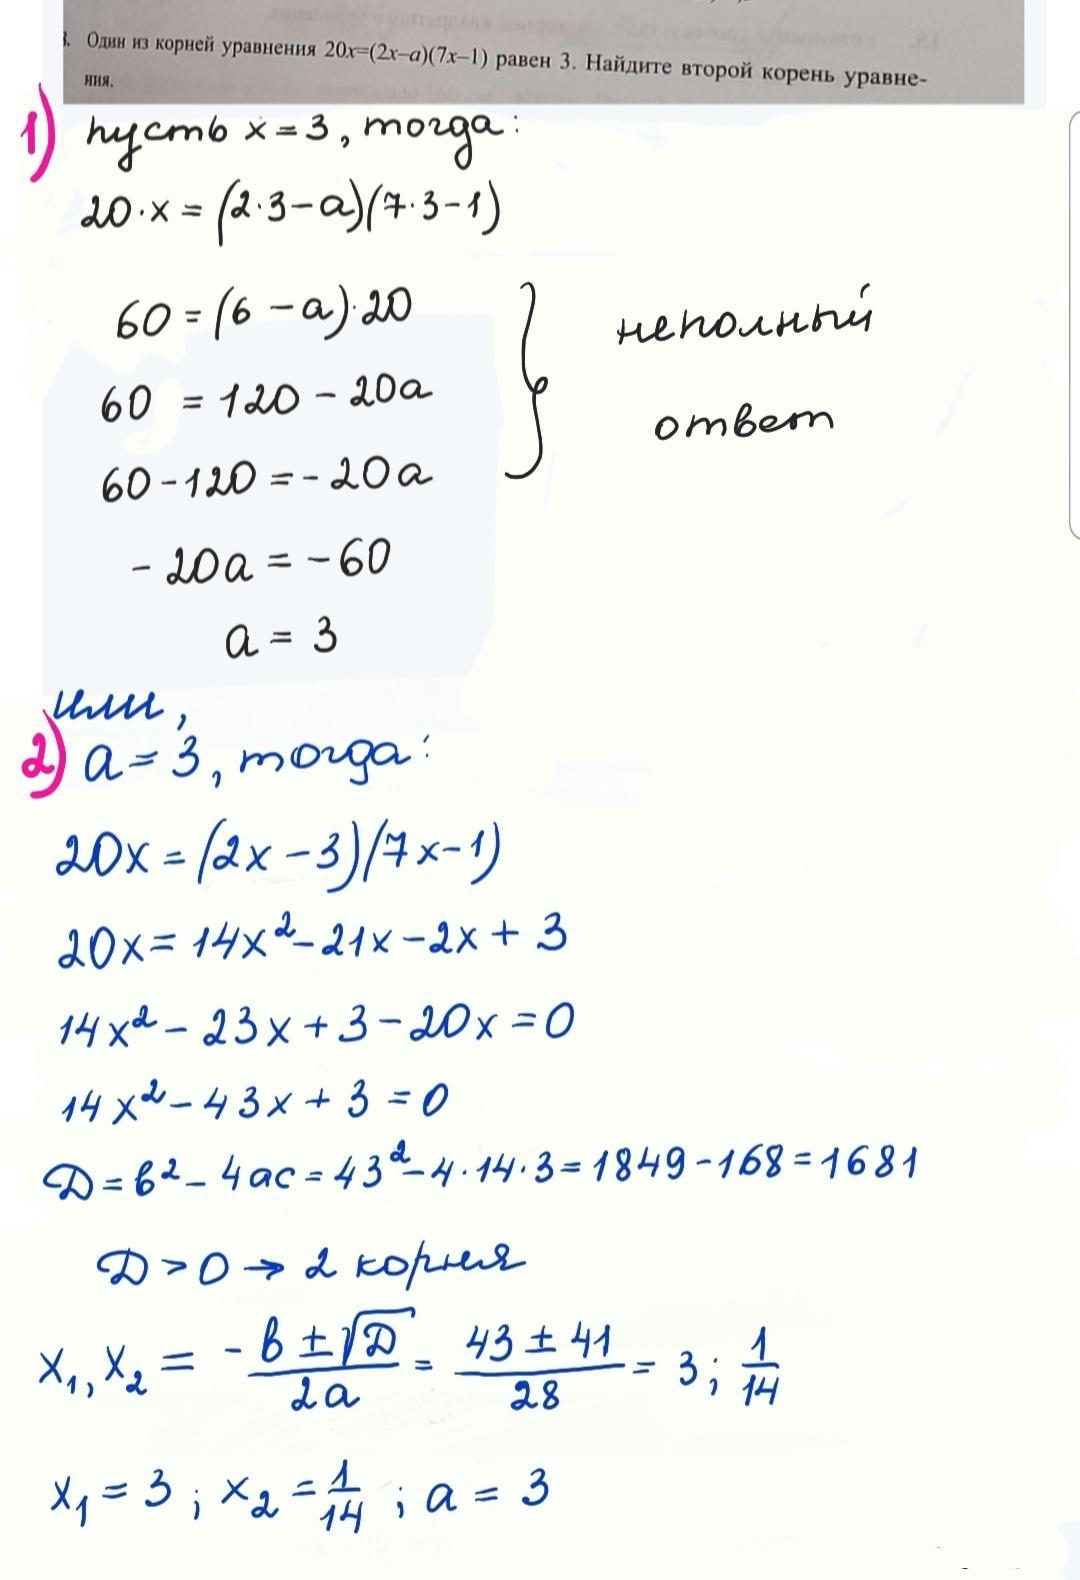 3. Один из корней уравнения 20x=(2x–a)(7x–1) равен 3. Найдите второй корень уравне-
ния.
1) пусть x = 3, тогда:
20·x = (2·3–a)(7·3–1)
60 = (6 – a)·20
60 = 120 – 20a
60 – 120 = – 20a
неполный
ответ
– 20a = – 60
a = 3
или,
2) a = 3, тогда:
20x = (2x – 3)(7x – 1)
20x = 14x² – 21x – 2x + 3
14x² – 23x + 3 – 20x = 0
14x² – 43x + 3 = 0
D = b² – 4ac = 43² – 4·14·3 = 1849 – 168 = 1681
D > 0 → 2 корня
x₁, x₂ = (-b ± √D)/2a = (43 ± 41)/28 = 3; 1/14
x₁ = 3 ; x₂ = 1/14 ; a = 3